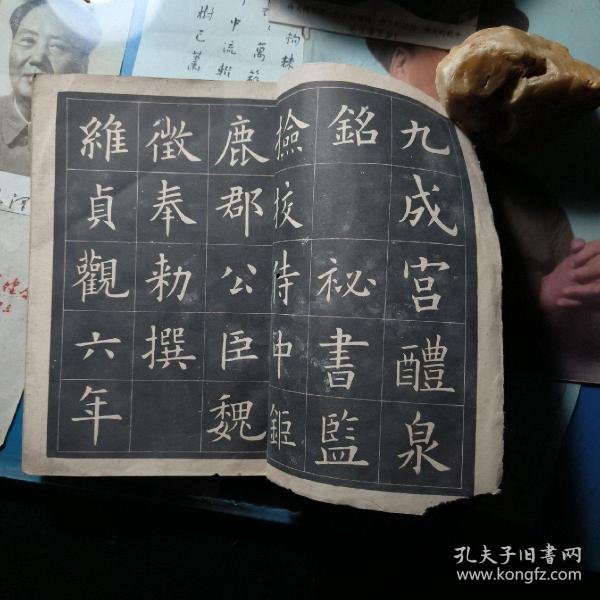 九成宮醴泉
銘 祕書監
撿挍侍中鉅
鹿郡公臣魏
徵奉勑撰
維貞觀六年
中流
樹已
萬
孔夫子旧书网
www.kongfz.com